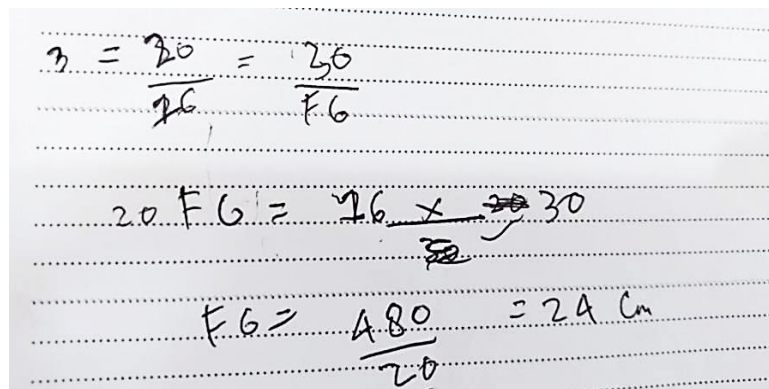 3 = 20/16 = 30/FG
20 FG = 16 × 30
FG = 480/20 = 24 Cm